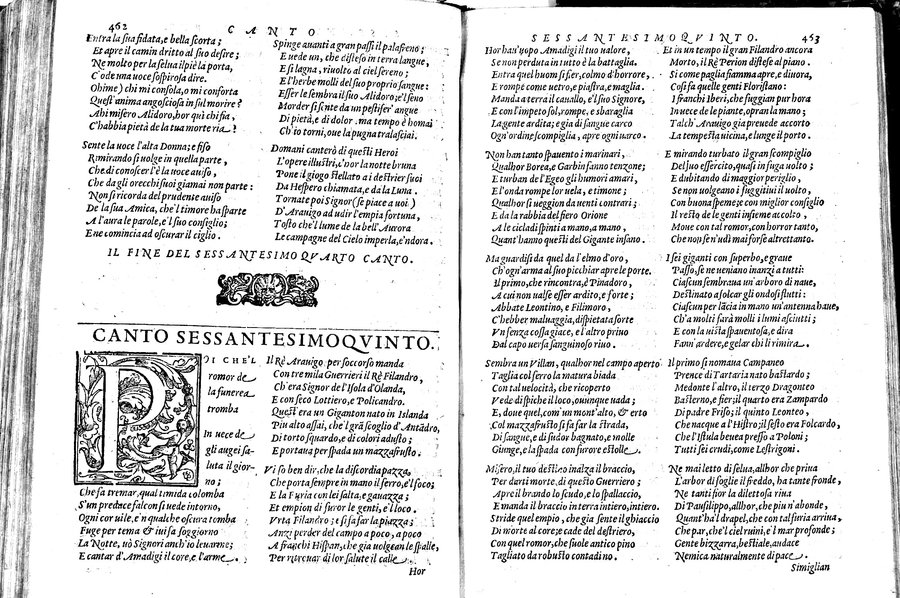 462 CANTO
Entra la sua fidata, e bella scorta;
Et apre il camin dritto al suo desire;
Ne molto per la selua il piè la porta,
C'ode una uoce sospirosa dire.
Ohime) chi mi consola, o mi conforta
Quest'anima angosciosa in sul morire?
Ahi misero Alidoro, hor qui chi fia,
C'habbia pietà de la tua morte ria?
Sente la uoce l'alta Donna; e fiso
Rimirando si uolge in quella parte,
Che di conoscer l'è la uoce auiso,
Che da gli orecchi suoi giamai non parte:
Non si ricorda del prudente auiso
De la sua Amica, che'l timore ha sparte
A l'aura le parole, e'l suo consiglio;
E ne comincia ad oscurar il ciglio.
Spinge auanti a gran passi il palafreno;
E uede un, che disteso in terra langue,
E si lagna, riuolto al ciel sereno;
E l'herbe molli del suo proprio sangue:
Esser le sembra il suo Alidoro; e'l seno
Morder si sente da un pestifer' angue
Di pietà, e di dolor. ma tempo è homai
Ch'io torni, oue la pugna tralasciai.
Domani canterò di questi Heroi
L'opere illustri, c'hor la notte bruna
Pone il giogo stellato a i destrier suoi
Da Hespero chiamata, e da la Luna.
Tornate poi Signor (se piace a uoi)
D'Arauigo ad udir l'empia fortuna,
Tosto che'l lume de la bell'Aurora
Le campagne del Cielo imperla, e'ndora.
IL FINE DEL SESSANTESIMOQVARTO CANTO.
CANTO SESSANTESIMOQVINTO.
POI CHE'L
romor de
la funerea
tromba
In uece de
gli augei saluta
il giorno;
Che fa tremar, qual timida colomba
S'un predace falcon si uede intorno,
Ogni cor uile, e'n qualche oscura tomba
Fuge per tema & iui fa soggiorno
La Notte, uò Signori anch'io leuarme;
E cantar d'Amadigi il core, e l'arme.
Il Rè Arauigo per soccorso manda
Con tre mila Guerrieri il Rè Filandro,
Ch'era Signor de l'Isola d'Olanda,
E con seco Lottiero, e Policandro.
Quest'era un Gigante nato in Islanda
Piu alto assai, che'l grã scoglio d'Antãdro,
Di torto sguardo, e di colori adusto;
E portaua per spada un mazzafrusto.
Vi so ben dir, che la discordia pazza,
Che porta sempre in mano il ferro, e'l foco;
E la Furia con lei salta, e gauazza;
Et empion di furor le genti, e'l loco.
Vrta Filandro; e si fa far la piazza;
Anzi perder del campo a poco, a poco
A franchi Hispan, che gia uolgean le spalle,
Per ritrouar di lor salute il calle.
Hor
SESSANTESIMOQVINTO. 463
Hor hau'uopo Amadigi il tuo ualore,
Se non perduta in tutto è la battaglia.
Entra quel huom si fier, colmo d'horrore,
E rompe come uetro, e piastra, e maglia.
Manda a terra il cauallo, e'l suo Signore,
E con l'impeto sol, rompe, e sbaraglia
La gente ardita; e gia di sangue carco
Ogn'ordine scompiglia, apre ogni uarco.
Non han tanto spauento i marinari,
Qualhor Borea, e Garbin fanno tenzone;
E turban de l'Egeo gli humori amari,
E l'onda rompe lor uela, e timone;
Qualhor si ueggion da uenti contrari;
E da la rabbia del fiero Orione
A le cicladi spinti a mano, a mano,
Quant'hanno questi del Gigante insano.
Ma guardisi da quel da l'elmo d'oro,
Ch'ogn'arma al suo picchiar apre le porte.
Il primo, che rincontra, è Pinadoro,
A cui non ualse esser ardito, e forte;
Abbate Leontino, e Filimoro,
C'hebber maluaggia, dispietata sorte
Vn senza coscia giace, e l'altro prino
Dal capo uersa sanguinoso riuo.
Sembra un Villan, qualhor nel campo aperto
Taglia col ferro la matura biada
Con tal uelocità, che ricoperto
Vede di spiche il loco, ouunque uada;
E, doue quel, com'un mont'alto, & erto
Col mazzafrusto si fa far la strada,
Di sangue, e di sudor bagnato, e molle
Giunge, e la spada con furore estolle.
Misero, il tuo destino inalza il braccio,
Per darti morte, di questo Guerriero;
Apre il brando lo scudo, e lo spallaccio,
E manda il braccio in terra intiero, intiero.
Stride quel empio, che gia sente il ghiaccio
Di morte al core; e cade del destriero,
Con quel romor, che suole antico pino
Tagliato da robusto contadino.
Et in un tempo il gran Filandro ancora
Morto, il Rè Perion distese al piano.
Si come paglia fiamma apre, e diuora,
Cosi fa quelle genti Floristano:
I franchi Iberi, che fuggian pur hora
In uece de le piante, opran la mano;
Talch'Arauigo gia preuede accorto
La tempesta uicina, e lunge il porto.
E mirando turbato il gran scompiglio
Del suo essercito, quasi in fuga uolto;
E dubitando di maggior periglio,
Se non uolgeano i fuggitiui il uolto,
Con buona speme; e con miglior consiglio
Il resto de le genti insieme accolto,
Moue con tal romor, con horror tanto,
Che non se n'udì mai forse altrettanto.
I sei giganti con superbo, e graue
Passo, se ne ueniano inanzi a tutti:
Ciascun sembraua un'arboro di naue,
Destinato a solcar gli ondosi flutti:
Ciascun per lãcia in mano un'antenna haue,
Ch'a molti farà molli i lumi asciutti;
E con la uista spauentosa, e dira
Fann'ardere, e gelar chi li rimira.
Il primo si nomaua Campaneo
Prence di Tartaria nato bastardo;
Medonte l'altro, il terzo Dragonteo
Basterno, e fier; il quarto era Zampardo
Di padre Friso; il quinto Leonteo,
Che nacque a l'Histro; il sesto era Folcardo,
Che l'Istula beuea presso a Poloni;
Tutti sei crudi, come Lestrigoni.
Ne mai letto di selua, allhor che priua
L'arbor di foglie il freddo, ha tante fronde,
Ne tanti fior la dilettosa riua
Di Pausilippo, allhor, che piu n'abonde,
Quant'ha'l drapel, che con tal furia arriua,
Che par, che'l ciel ruini, e'l mar profonde;
Gente bizzarra, bestiale, audace
Nemica naturalmente di pace.
Simiglian